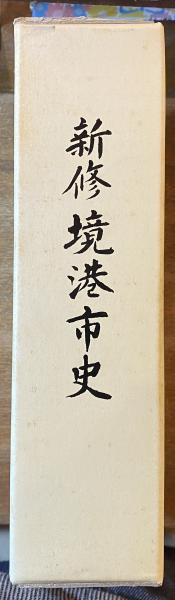 新修境港市史